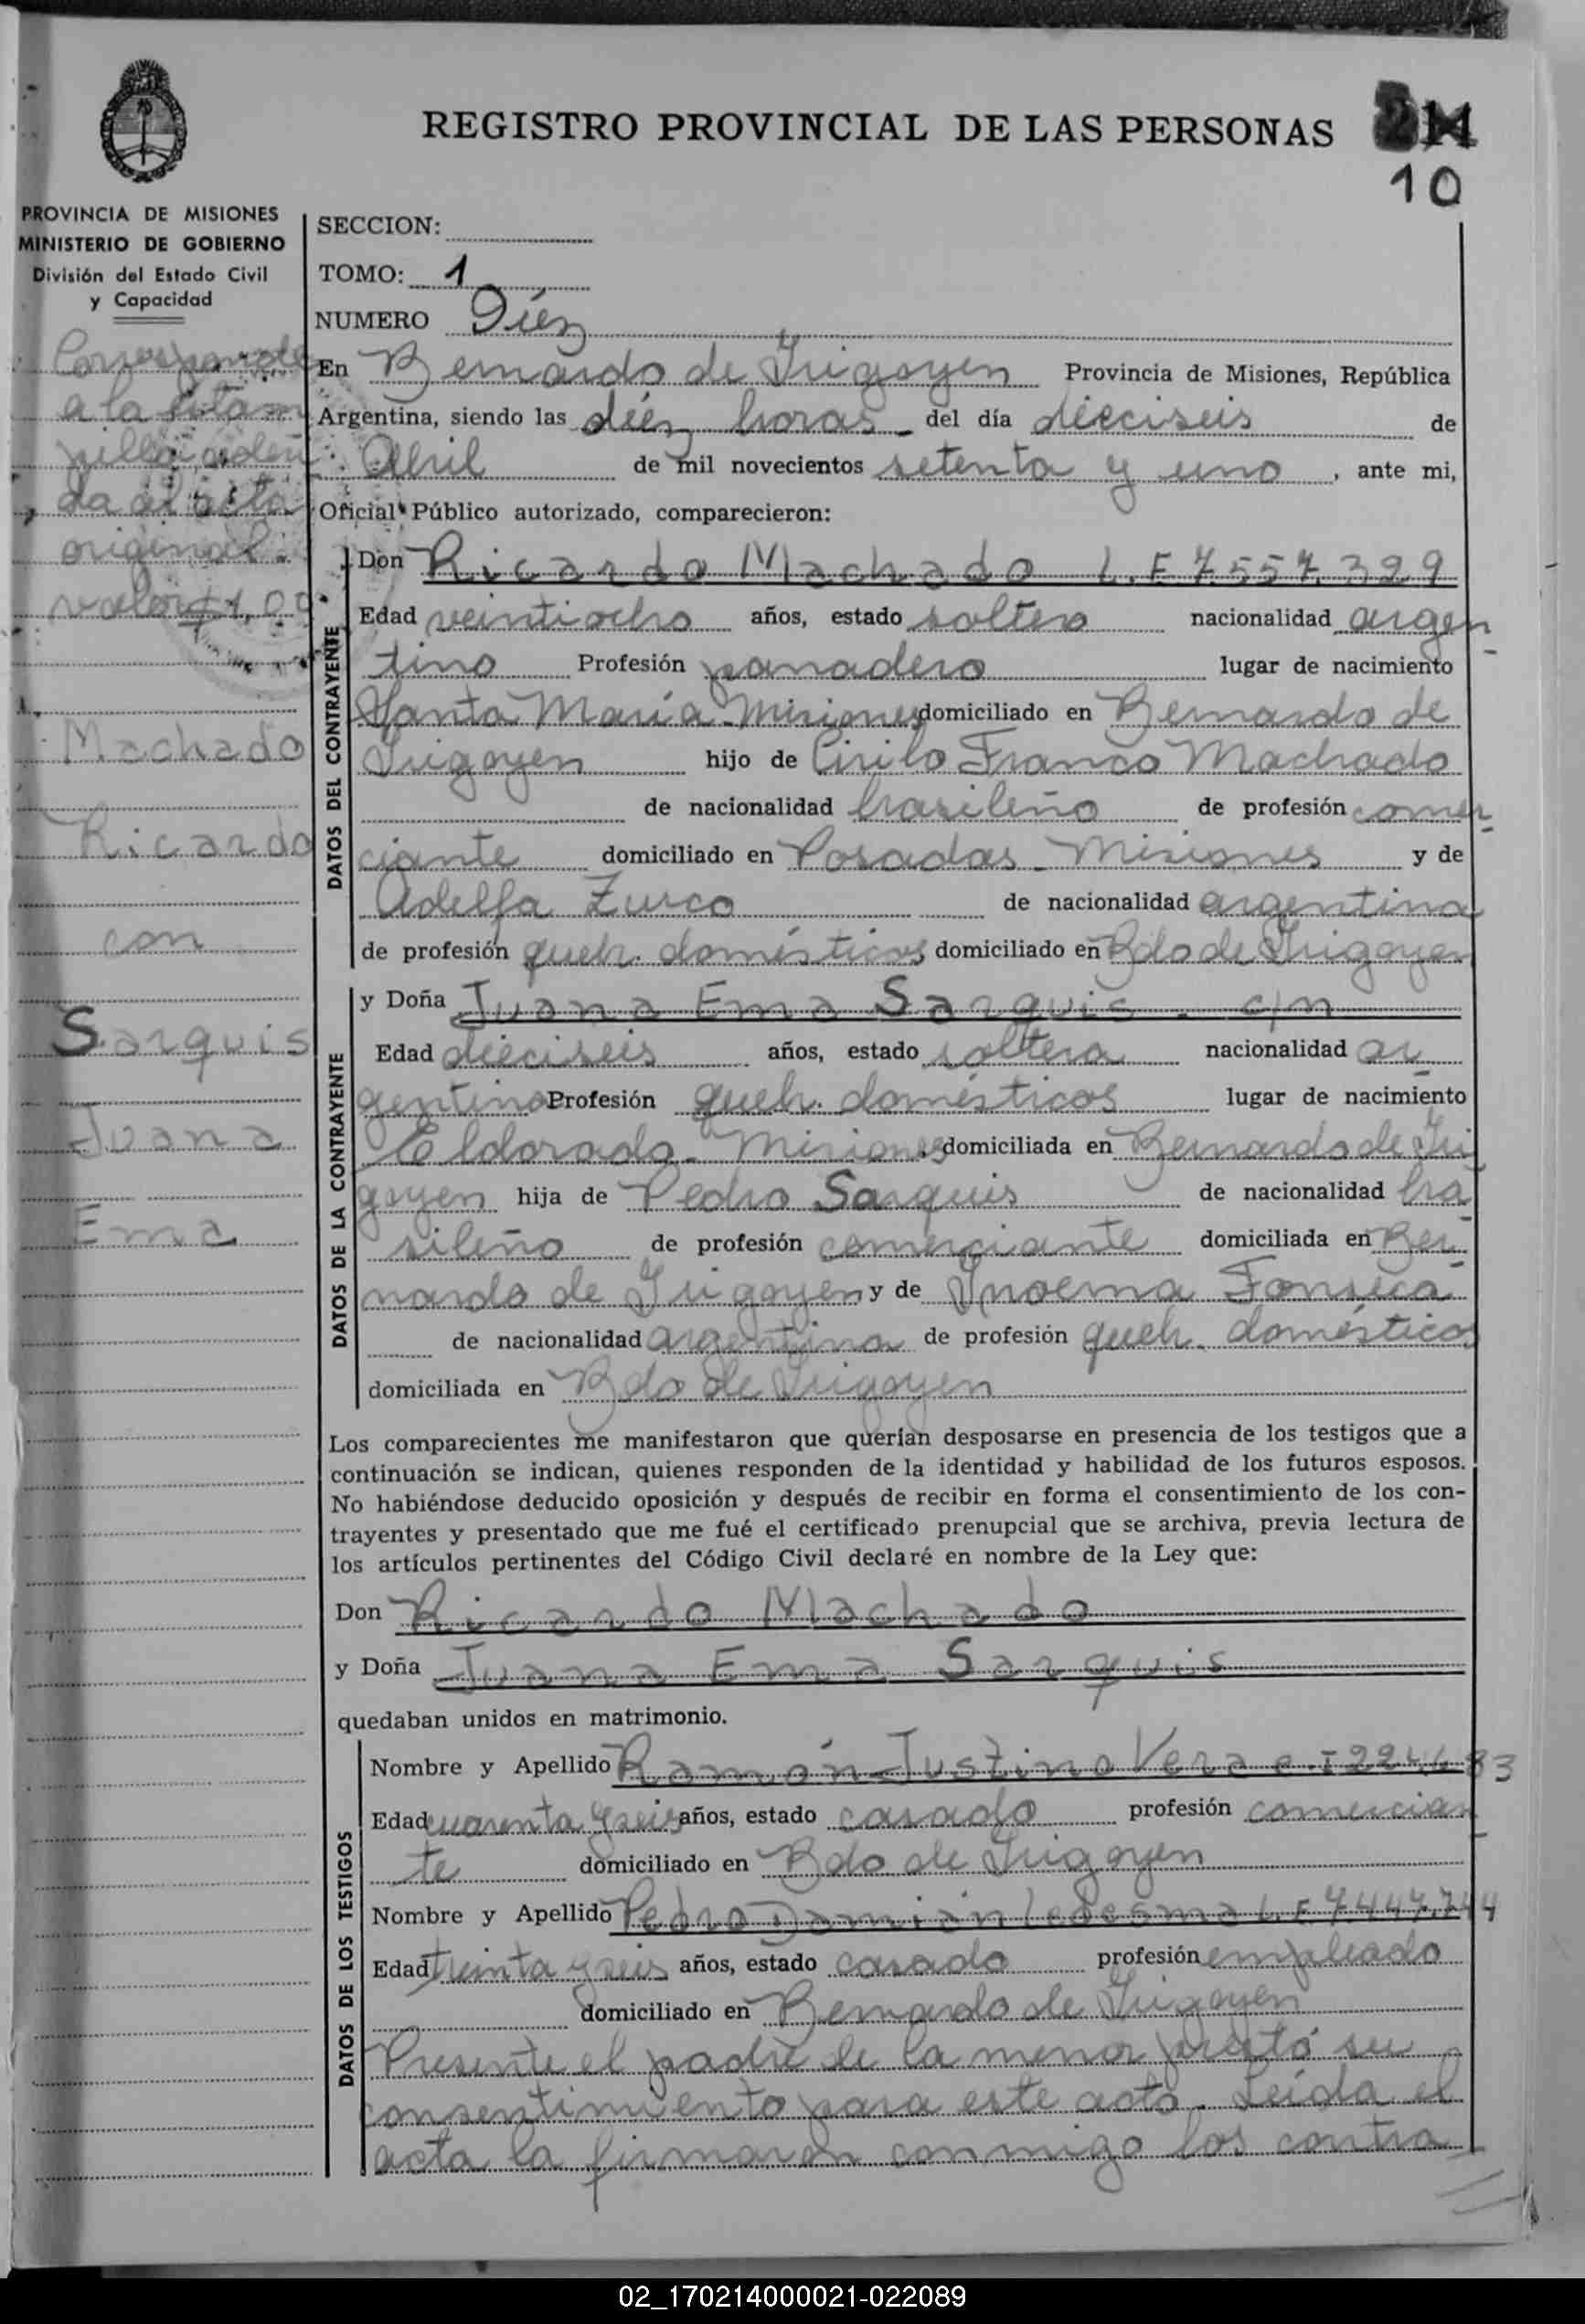 REGISTRO PROVINCIAL DE LAS PERSONAS
10
PROVINCIA DE MISIONES
MINISTERIO DE GOBIERNO
División del Estado Civil
y Capacidad
Corresponde
a la estam
pilla aderi
da al acta
original.
valor $1,00
Machado
Ricardo
con
Sarquis
Juana
Ema
SECCION:
TOMO: 1
NUMERO Diéz
En Bernardo de Irigoyen Provincia de Misiones, República
Argentina, siendo las diéz horas del día dieciseis de
Abril de mil novecientos setenta y uno, ante mi,
Oficial Público autorizado, comparecieron:
DATOS DEL CONTRAYENTE
Don Ricardo Machado L.E 7.557.329
Edad veintiocho años, estado soltero nacionalidad argen-
tino Profesión panadero lugar de nacimiento
Santa María - Misiones domiciliado en Bernardo de
Irigoyen hijo de Cirilo Franco Machado
de nacionalidad brasileño de profesión comer-
ciante domiciliado en Posadas - Misiones y de
Adelfa Zurco de nacionalidad argentina
de profesión queh. domésticos domiciliado en Bdo de Irigoyen
DATOS DE LA CONTRAYENTE
y Doña Juana Ema Sarquis. c/n
Edad dieciseis años, estado soltera nacionalidad ar-
gentina Profesión queh. domésticos lugar de nacimiento
Eldorado - Misiones domiciliada en Bernardo de Iri-
goyen hija de Pedro Sarquis de nacionalidad bra-
sileño de profesión comerciante domiciliada en Ber-
nardo de Irigoyen y de Fonseca
de nacionalidad argentina de profesión queh. domésticos
domiciliada en Bdo de Irigoyen
Los comparecientes me manifestaron que querían desposarse en presencia de los testigos que a
continuación se indican, quienes responden de la identidad y habilidad de los futuros esposos.
No habiéndose deducido oposición y después de recibir en forma el consentimiento de los con-
trayentes y presentado que me fué el certificado prenupcial que se archiva, previa lectura de
los artículos pertinentes del Código Civil declaré en nombre de la Ley que:
Don Ricardo Machado
y Doña Juana Ema Sarquis
quedaban unidos en matrimonio.
DATOS DE LOS TESTIGOS
Nombre y Apellido Ramón Justino Vera
Edad cuarenta y seis años, estado casado profesión comercian-
te domiciliado en Bdo de Irigoyen
Nombre y Apellido Pedro Damián Ledesma L.E 7.447.744
Edad treinta y seis años, estado casado profesión empleado
domiciliado en Bernardo de Irigoyen
Presente el padre de la menor prestó su
consentimiento para este acto. Leída el
acta la firmaron conmigo los contra
02_170214000021-022089